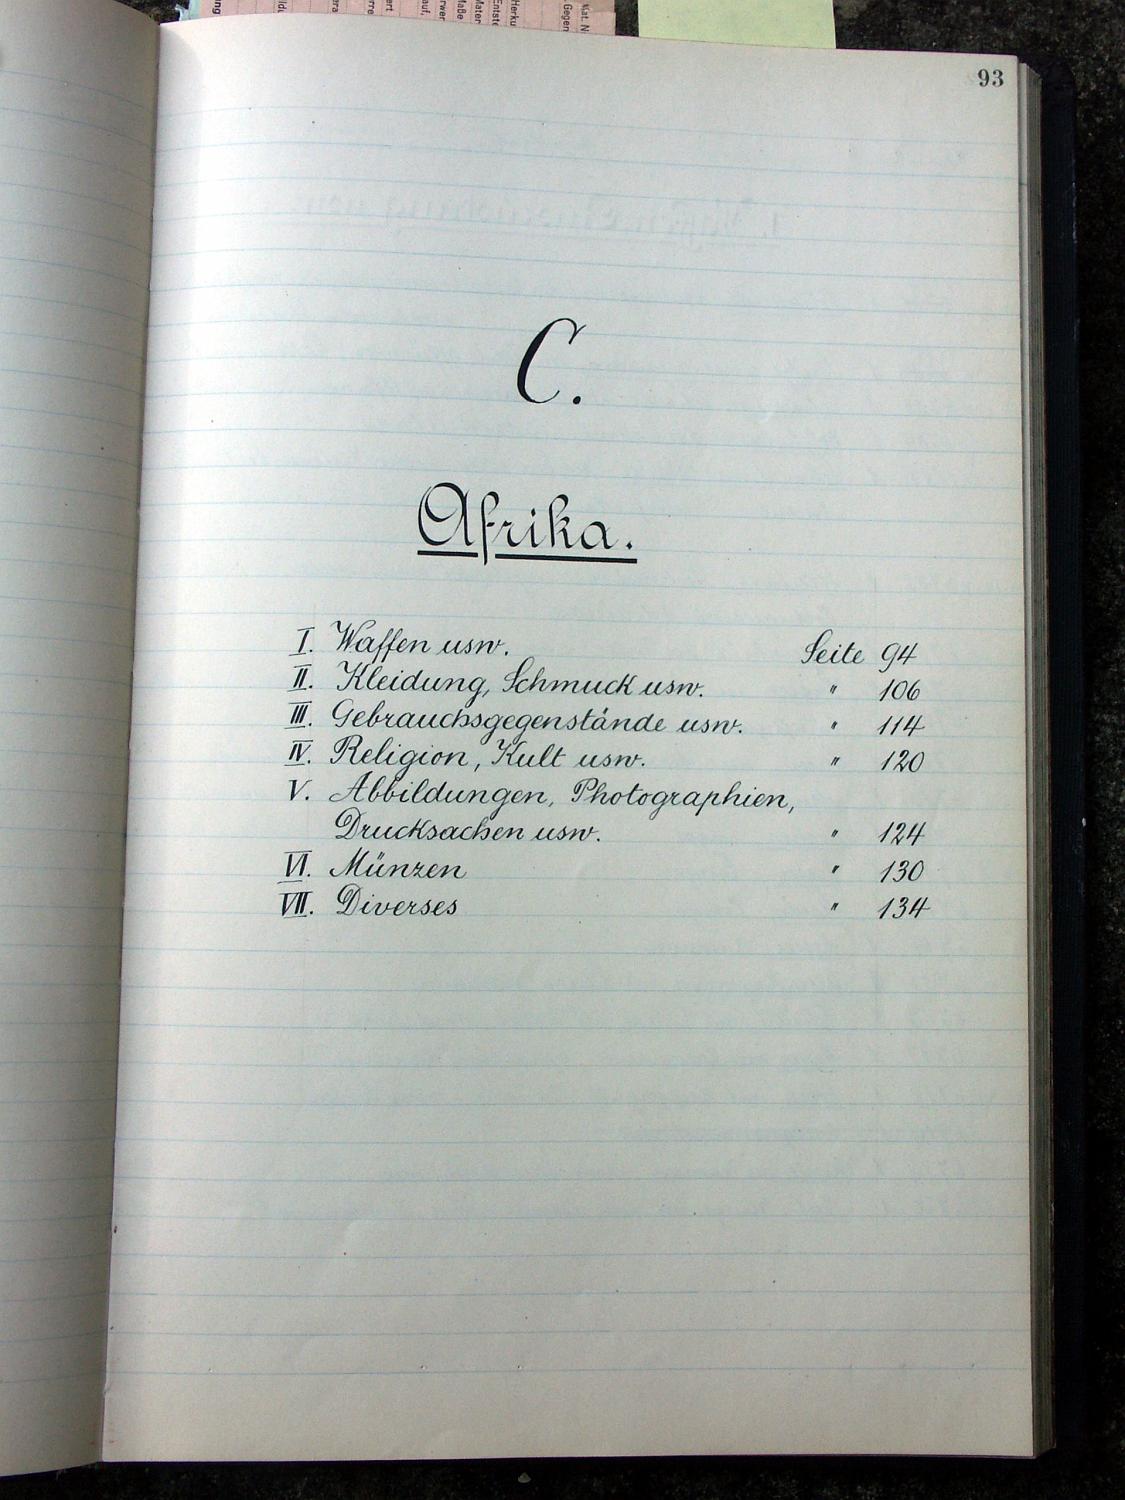 93
C.
Afrika.
I. Waffen usw. Seite 94
II. Kleidung, Schmuck usw. " 106
III. Gebrauchsgegenstände usw. " 114
IV. Religion, Kult usw. " 120
V. Abbildungen, Photographien,
Drucksachen usw. " 124
VI. Münzen " 130
VII. Diverses " 134